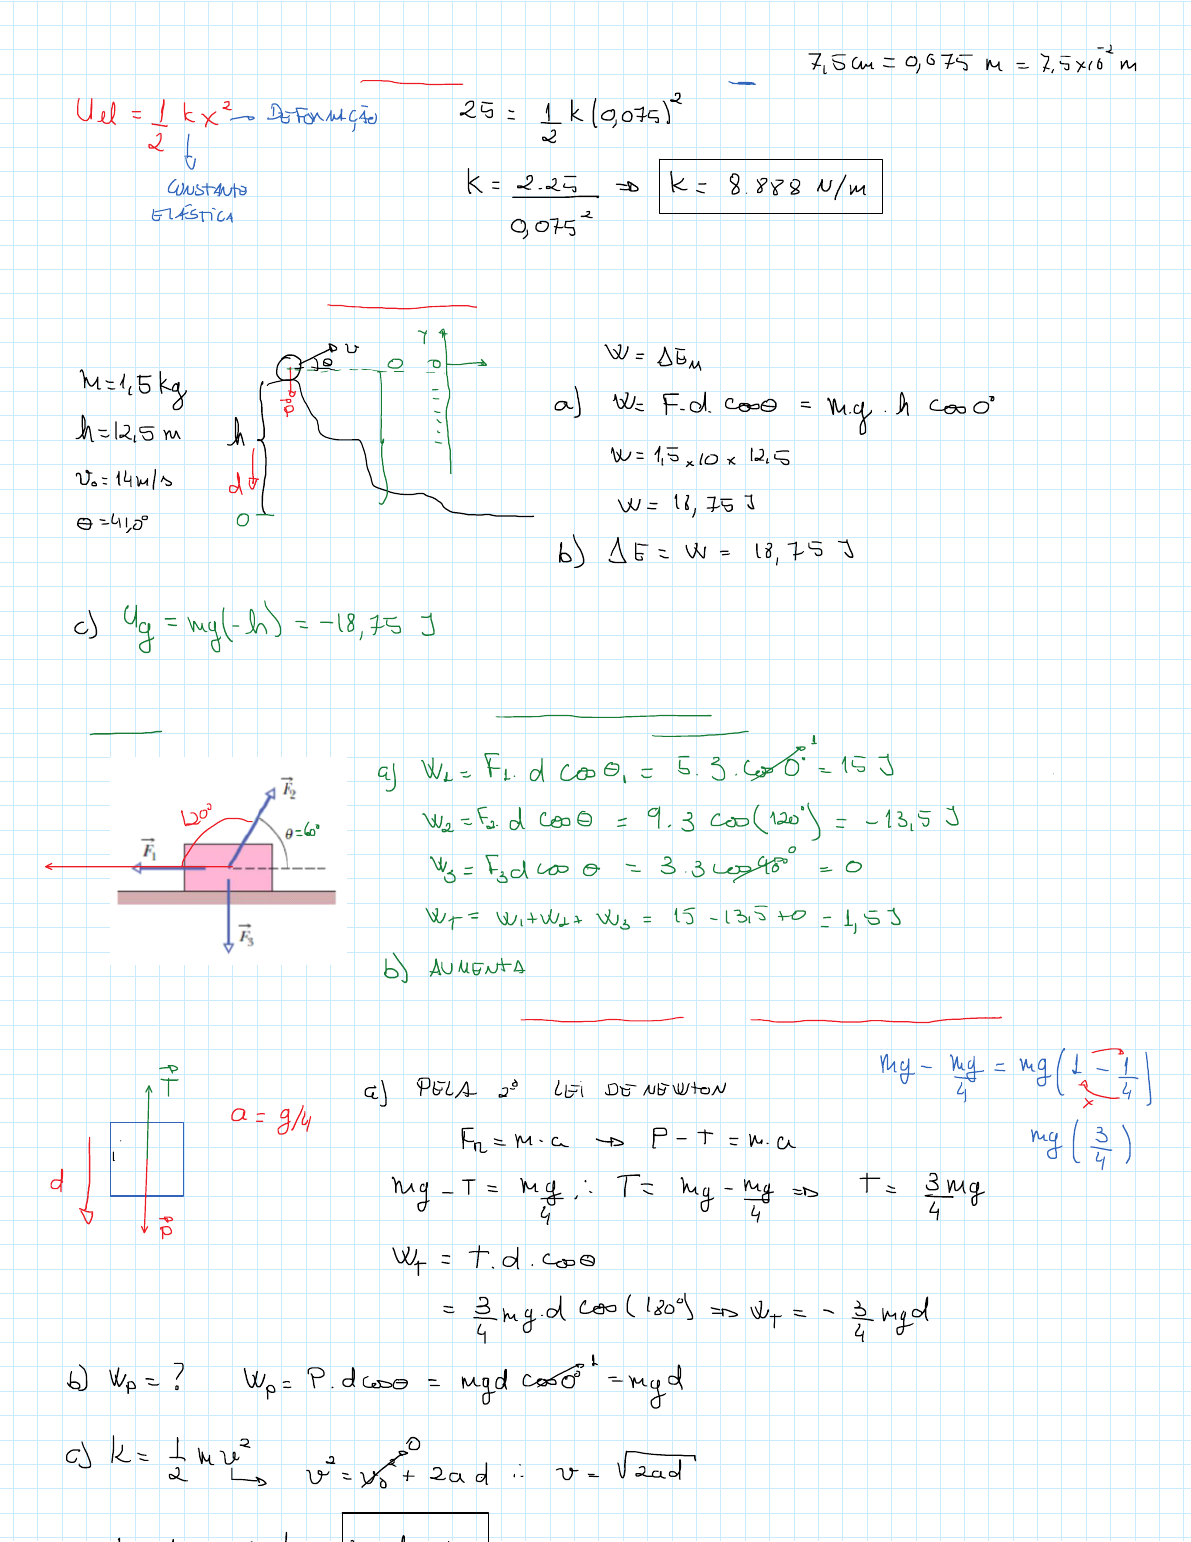 7,5cm = 0,075 m = 7,5×10⁻² m
Uel = 1/2 k x² → DEFORMAÇÃO
CONSTANTE
ELÁSTICA
25 = 1/2 k (0,075)²
k = 2.25/0,075² ⇒ k = 8.888 N/m
m = 1,5 kg
h = 12,5 m
v₀ = 14 m/s
θ = 41,0°
v
θ
P
h
d
O
O
Y
O
W = ΔE_M
a) W = F.d. cosθ = m.g.h cos0°
W = 1,5 × 10 × 12,5
W = 18,75 J
b) ΔE = W = 18,75 J
c) Ug = mg(-h) = -18,75 J
120°
F₂
θ = 60°
F₁
F₃
a) W₁ = F₁. d cosθ₁ = 5.3.cos0° ¹ = 15 J
W₂ = F₂. d cosθ = 9.3 cos(120°) = -13,5 J
W₃ = F₃ d cosθ = 3.3 cos90° ⁰ = 0
W_T = W₁ + W₂ + W₃ = 15 - 13,5 + 0 = 1,5 J
b) AUMENTA
T
a = g/4
d
P
a) PELA 2ª LEI DE NEWTON
mg - mg/4 = mg(1 - 1/4)
x
mg(3/4)
F_R = m.a → P - T = m.a
mg - T = mg/4 ∴ T = mg - mg/4 ⇒ T = 3/4 mg
W_T = T.d.cosθ
= 3/4 mg.d cos(180°) ⇒ W_T = - 3/4 mgd
b) W_P = ? W_P = P.d cosθ = mgd cos0° ¹ = mgd
c) k = 1/2 m v² ↳ v² = v₀² ⁰ + 2ad ∴ v = √2ad